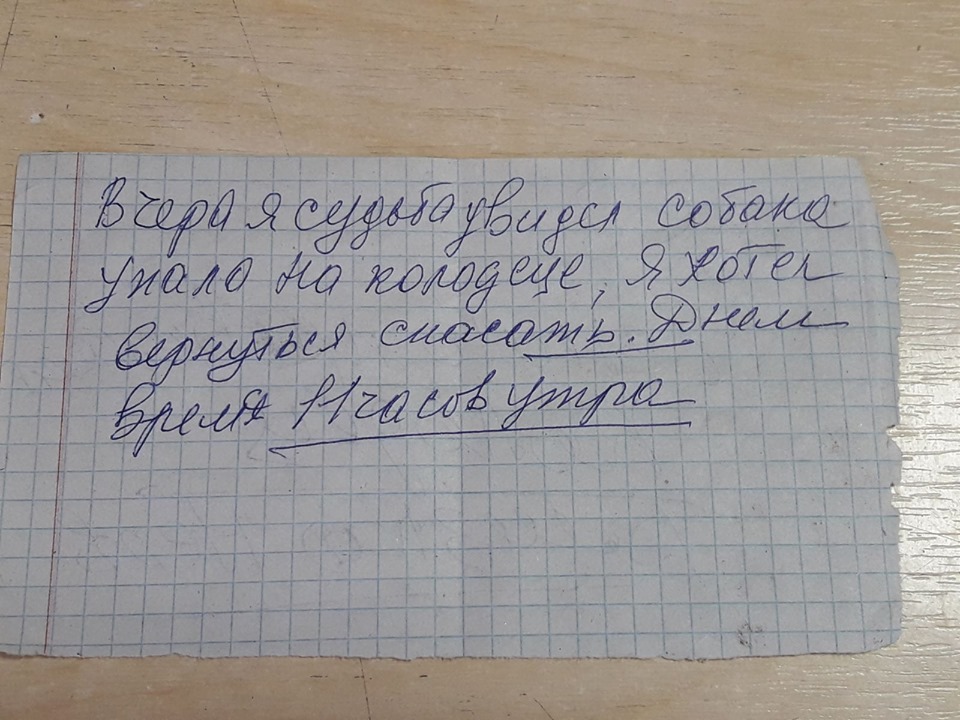 Вчера я судьба увидел собака
упало на колодеце, я хотел
вернуться спасать. Днем
время 11 часов утра